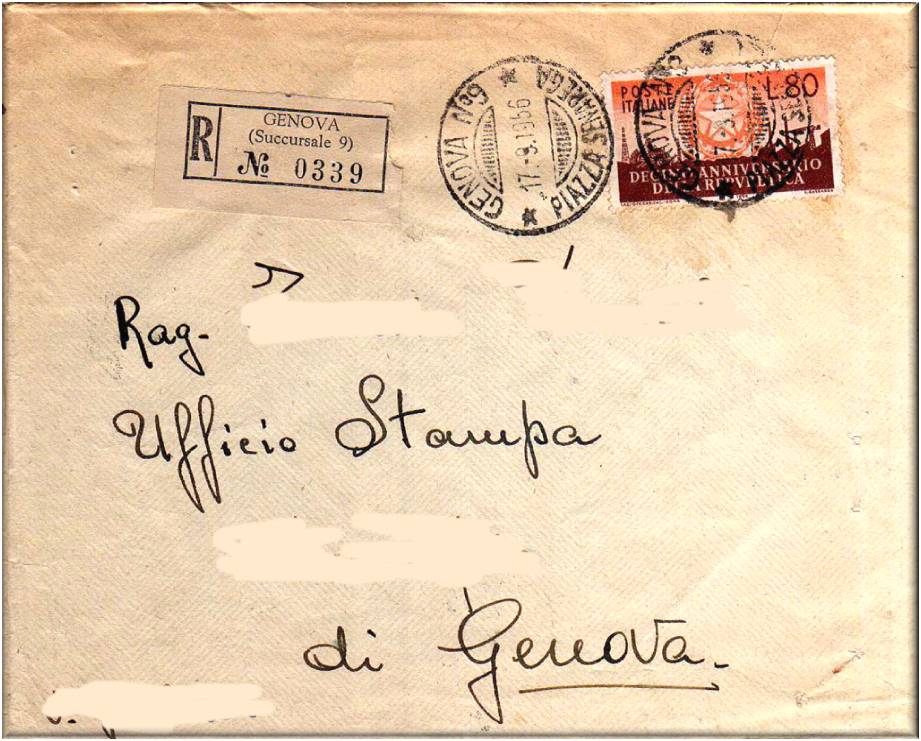 R
GENOVA
(Succursale 9)
No 0339
GENOVA No9
17.-9.1956
PIAZZA SENAREGA
POSTE
ITALIANE
L.80
DECIMO ANNIVERSARIO
DELLA REPVBBLICA
Rag.
Ufficio Stampa
di Genova.